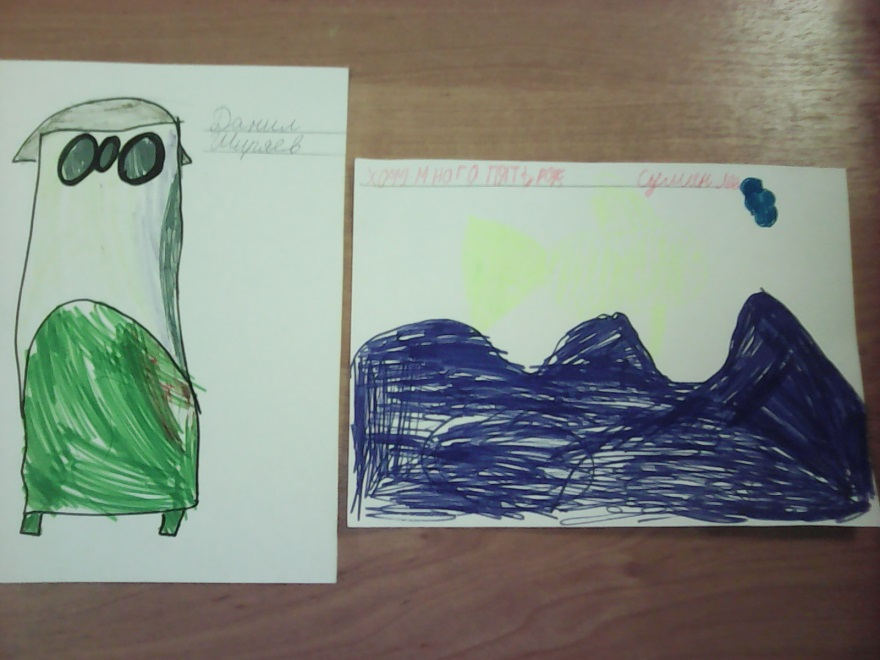 Данил
Миряев
ХОЧУ МНОГО ПЯТЬРОК